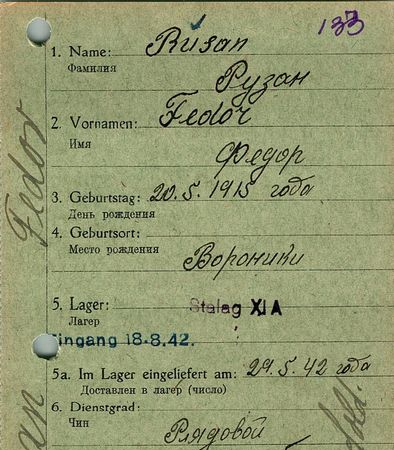 133
1. Name: Rusan
Фамилия
Рузан
2. Vornamen: Fedor
Имя
Федор
3. Geburtstag: 20.5.1915 года
День рождения
4. Geburtsort:
Место рождения
Вороники
5. Lager: Stalag XI A
Лагер
Eingang 18-8.42.
5a. Im Lager eingeliefert am: 29.5.42 года
Доставлен в лагер (число)
6. Dienstgrad:
Чин
Рядовой
Fedor